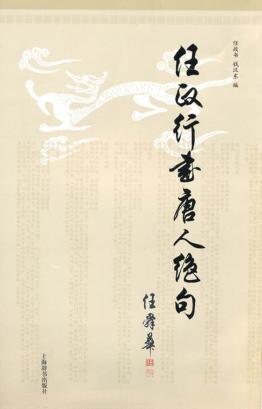 任政书 钱汉东 编
任政行書唐人绝句
任舜華
上海辞书出版社